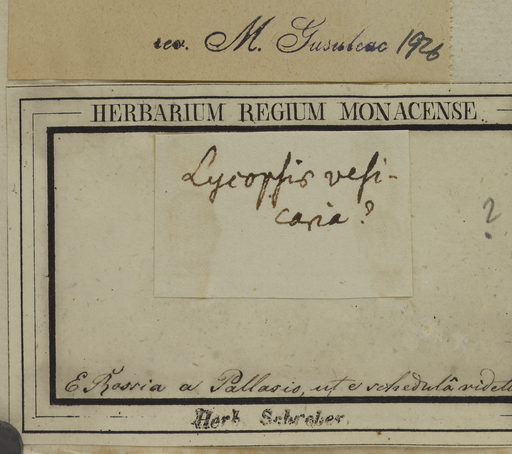 rev. M. Gusuleac 1926
HERBARIUM REGIUM MONACENSE
Lycopsis vesi-
caria?
?
E Rossia a Pallasio, ut e schedulâ videt
Herb. Schreber.